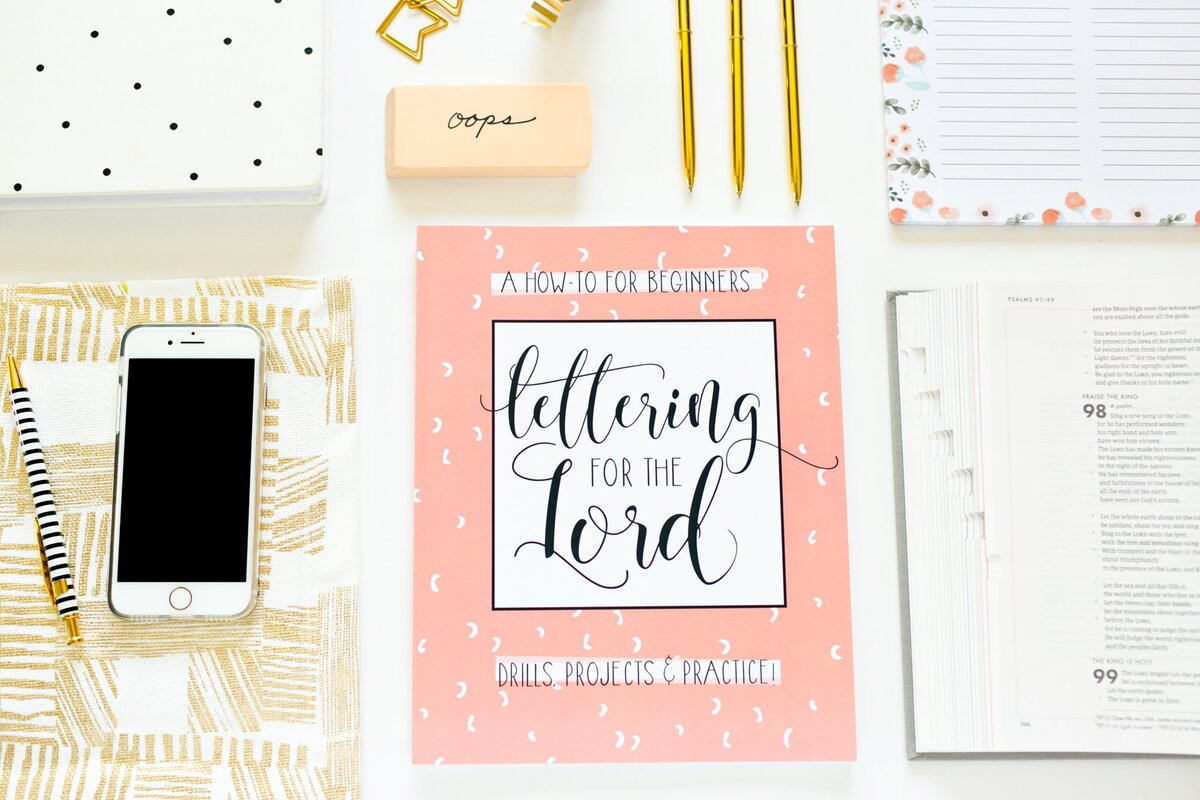 oops
A HOW-TO FOR BEGINNERS
lettering
FOR THE
Lord
DRILLS, PROJECTS & PRACTICE!
PSALMS 97–99
are the Most High over the whole earth
you are exalted above all the gods.
You who love the LORD, hate evil!
He protects the lives of his faithful
he rescues them from the power of the
Light dawns for the righteous,
gladness for the upright in heart.
Be glad in the LORD, you righteous
and give thanks to his holy name.
PRAISE THE KING
98 A psalm.
Sing a new song to the LORD,
for he has performed wonders;
his right hand and holy arm
have won him victory.
The LORD has made his victory
he has revealed his righteousness
in the sight of the nations.
He has remembered his love
and faithfulness to the house of
all the ends of the earth
have seen our God's victory.
Let the whole earth shout to the
be jubilant, shout for joy, and sing
Sing to the LORD with the lyre,
with the lyre and melodious song.
With trumpets and the blast of the
shout triumphantly
in the presence of the LORD, our
Let the sea and all that fills it,
the world and those who live in
Let the rivers clap their hands,
let the mountains shout together
before the LORD,
for he is coming to judge the
He will judge the world
and the peoples fairly.
THE KING IS HOLY
99 The LORD reigns! Let the
He is enthroned between
Let the earth quake.
The LORD is great in Zion;